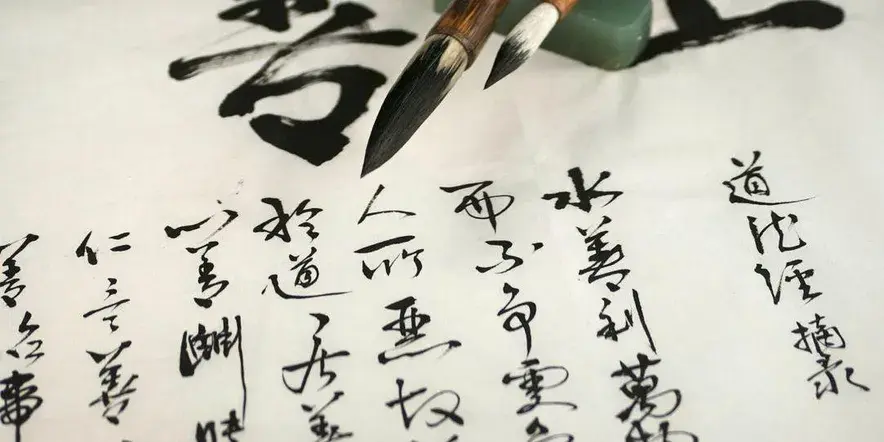 上善
道德經摘录
水善利萬物
而不争處
人所惡故
於道居善
心善淵
仁言善
善治事